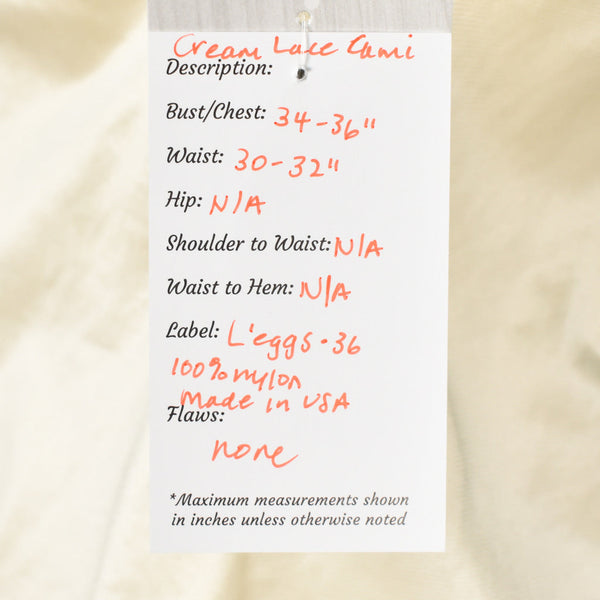 Cream Lace Cami
Description:
Bust/Chest: 34-36"
Waist: 30-32"
Hip: N/A
Shoulder to Waist: N/A
Waist to Hem: N/A
Label: L'eggs • 36
100% nylon
Made in USA
Flaws:
none
*Maximum measurements shown
in inches unless otherwise noted